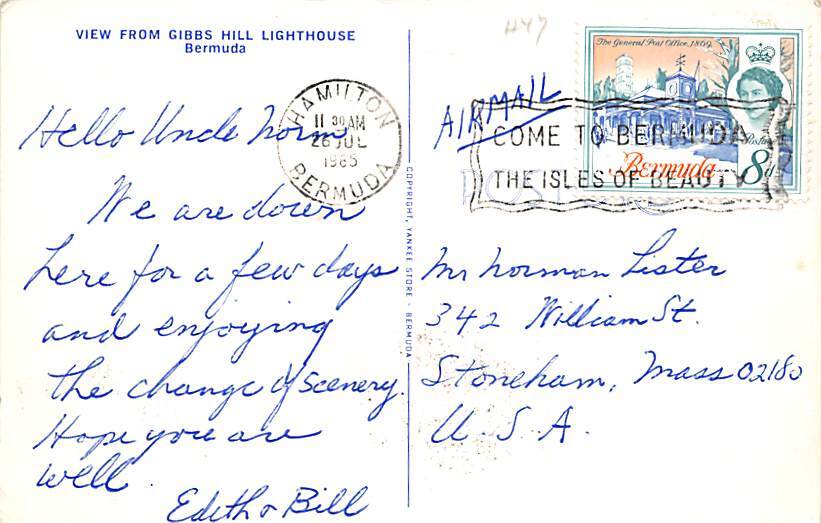 VIEW FROM GIBBS HILL LIGHTHOUSE
Bermuda
Hello Uncle Norm
We are down
here for a few days
and enjoying
the change of scenery.
Hope you are
well.
Edith & Bill
HAMILTON
11 30 AM
26 JUL
1965
BERMUDA
COPYRIGHT, YANKEE STORE - BERMUDA
A47
AIRMAIL
The General Post Office, 1869
COME TO BERMUDA
THE ISLES OF BEAUTY
Postage
Bermuda
8d
POST
Mr Norman Lister
342 William St.
Stoneham, Mass 02180
U.S.A.